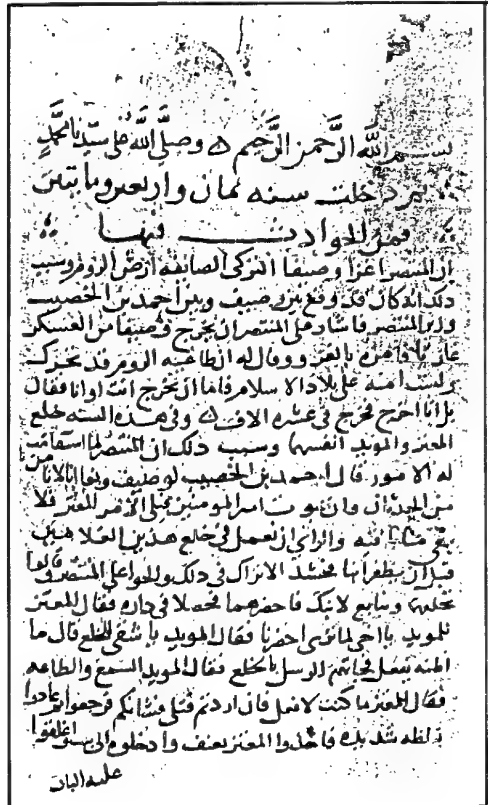 بسم الله الرحمن الرحيم ۞ وصلى الله على سيدنا محمد
ثم دخلت سنه ثمان واربعين ومايتين
فمن الحوادث فيها
ان المنتصر اغزا وصيفا التركى الصائفه ارض الروم وسبب
ذلك انه كان قد وقع بين وصيف وبين احمد بن الخصيب
وزير المنتصر فاشار على المنتصر ان يخرج وصيفا من العسكر
غازيا فامره بالغزو وقال له ان طاغيه الروم قد تحرك
ولست امنه على بلاد الاسلام فاما ان تخرج انت او انا فقال
بل انا اخرج فخرج فى عشره الاف ۞ وفى هذه السنه خلع
المعتز والمويد انفسهما وسبب ذلك ان المنتصر لما استقامت
له الامور قال احمد بن الخصيب لوصيف وبغا انا لا نامن
من الحدثان وان يموت امير المومنين فيلى الامر المعتز فلا
يبقى منا باقيه والراى ان نعمل فى خلع هذين الغلامين
قبل ان يظفرا بنا فجد الاتراك فى ذلك والحوا على المنتصر وقالوا
نخلعهما ونبايع لابنك فاحضرهما فجعلا فى دار فقال المعتز
للمويد يا اخى لم ترى احضرنا فقال المويد يا شقى للخلع قال ما
اظنه يفعل فجاتهم الرسل بالخلع فقال المويد السمع والطاعه
فقال المعتز ما كنت لافعل فان اردتم قتلى فشانكم فرجعوا ثم عادوا
بغلظه شديده فاخذوا المعتز بعنف وادخلوه الى بيت واغلقوا
عليه الباب